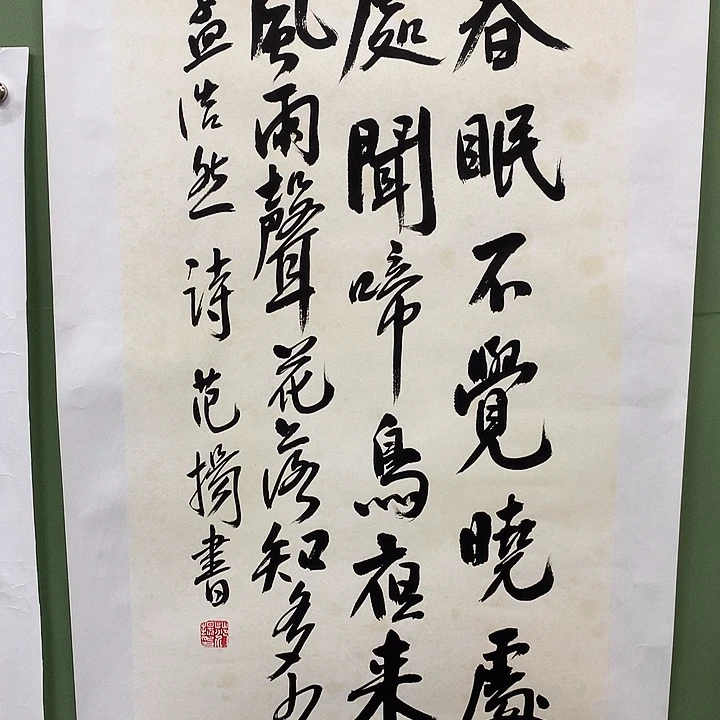 春眠不覺曉處
處聞啼鳥夜来
風雨聲花落知多少
孟浩然詩范揚書